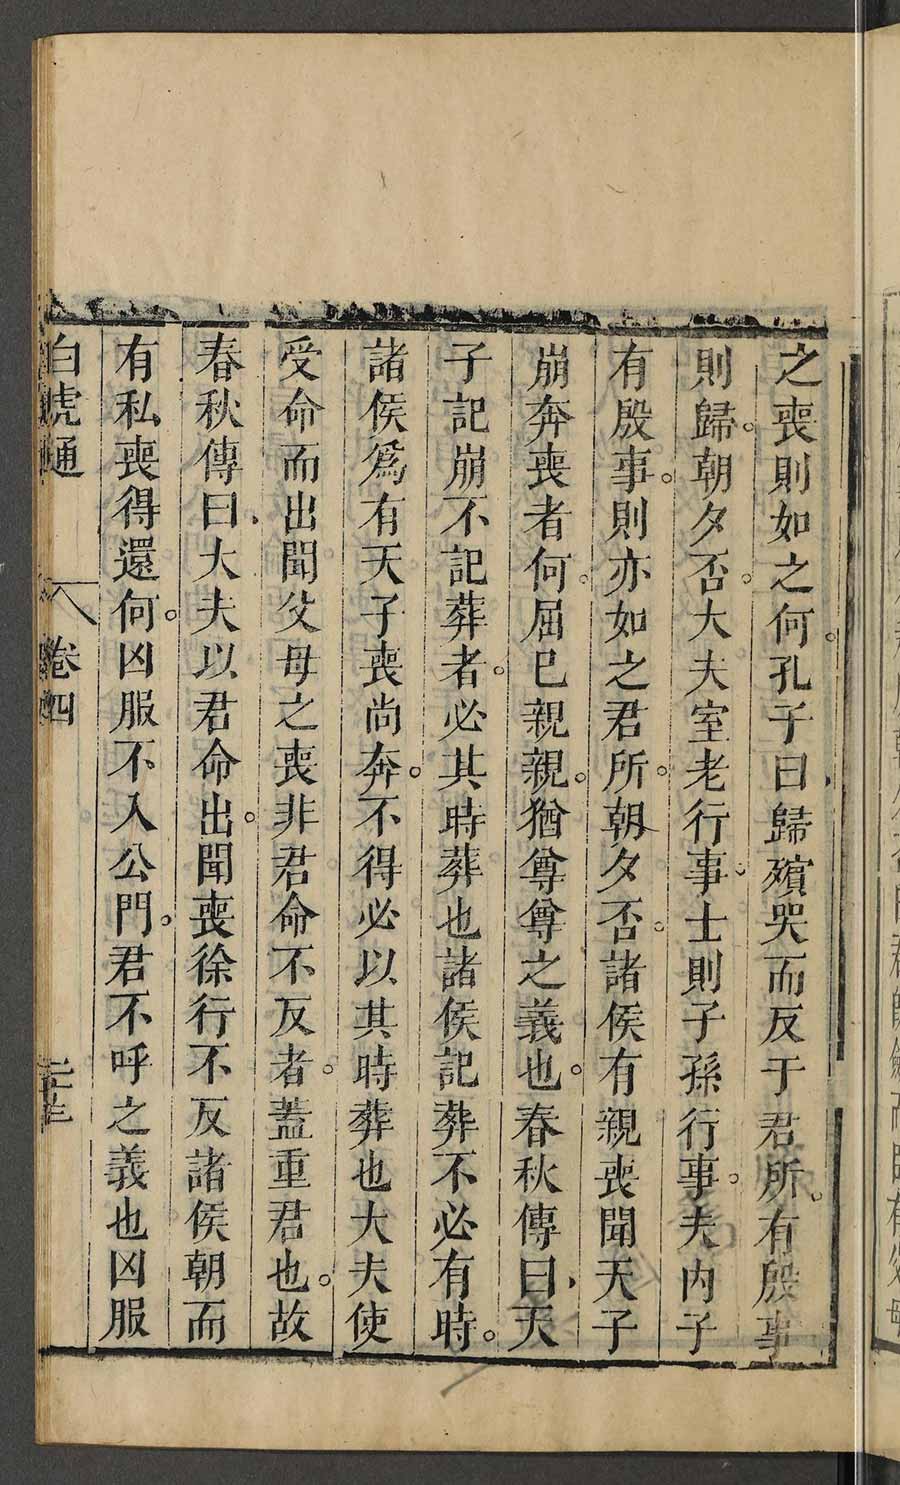 之喪則如之何孔子曰歸殯哭而反于君所有殷事
則歸朝夕否大夫室老行事士則子孫行事夫內子
有殷事則亦如之君所朝夕否諸侯有親喪聞天子
崩奔喪者何屈已親親猶尊尊之義也春秋傳曰天
子記崩不記葬者必其時葬也諸侯記葬不必有時
諸侯爲有天子喪尚奔不得必以其時葬也大夫使
受命而出聞父母之喪非君命不反者蓋重君也故
春秋傳曰大夫以君命出聞喪徐行不反諸侯朝而
有私喪得還何凶服不入公門君不呼之義也凶服
白虎通 卷四